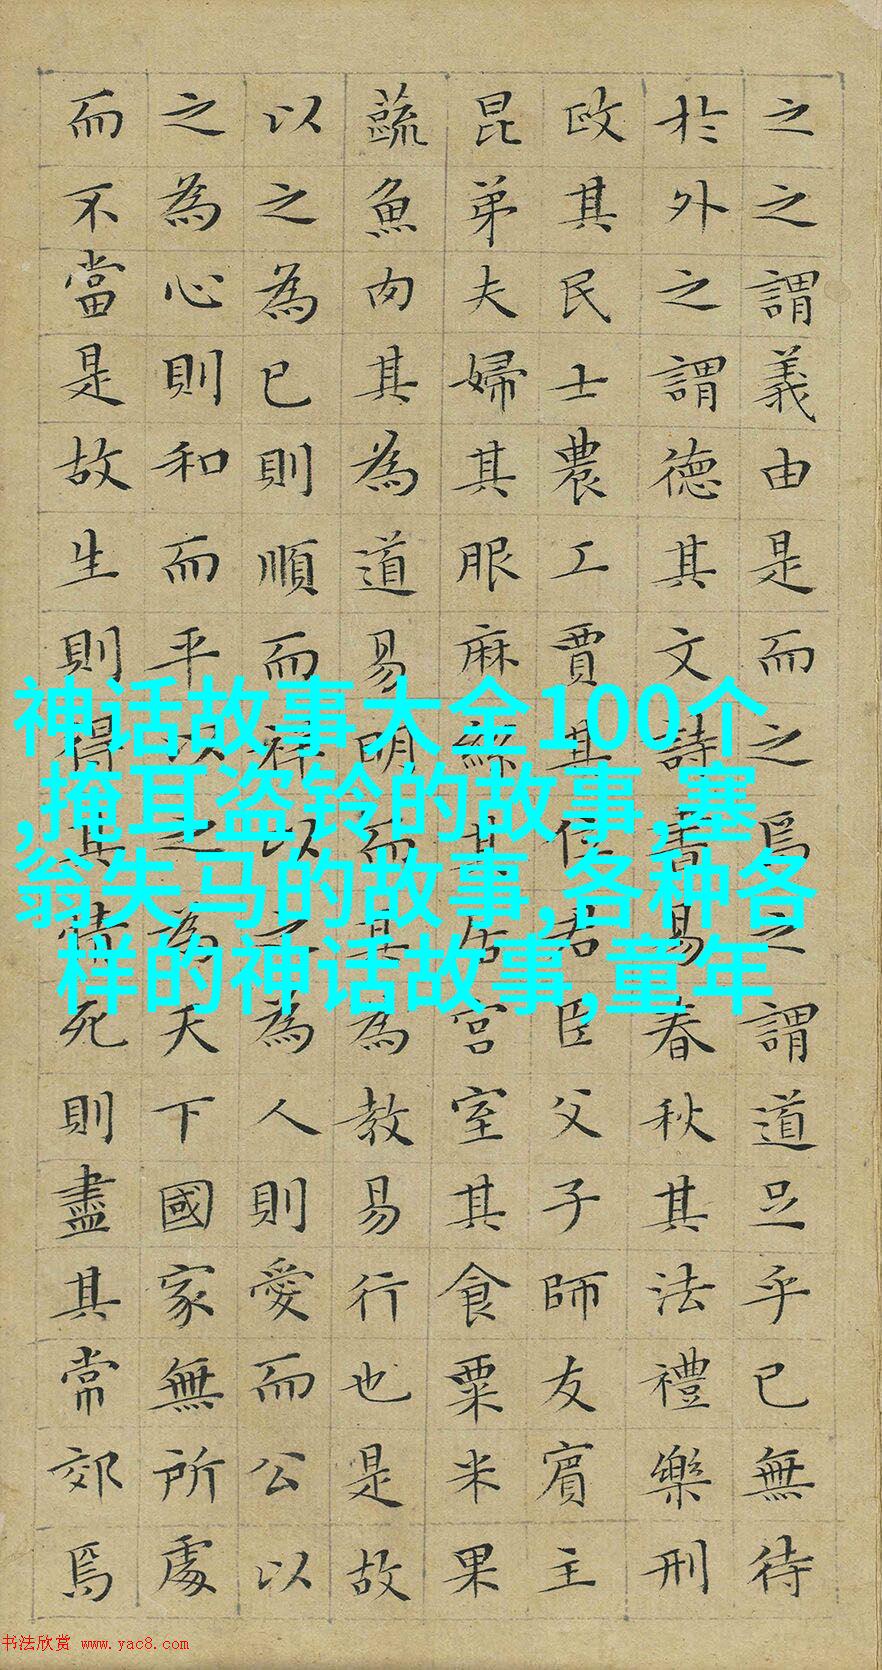 之之謂義由是而之焉之謂道足乎已無待
於外之謂德其文詩書易春秋其法禮樂刑
政其民士農工賈其位君臣父子師友賓主
昆弟夫婦其服麻絲其居宮室其食粟米果
蔬魚肉其為道易明而其為教易行也是故
以之為已則順而祥以之為人則愛而公以
之為心則和而平以之為天下國家無所處
而不當是故生則得其情死則盡其常郊焉
神话故事大全100个
,掩耳盗铃的故事,塞
翁失马的故事,各种各
样的神话故事,童年
书法欣赏 www.yac8.com